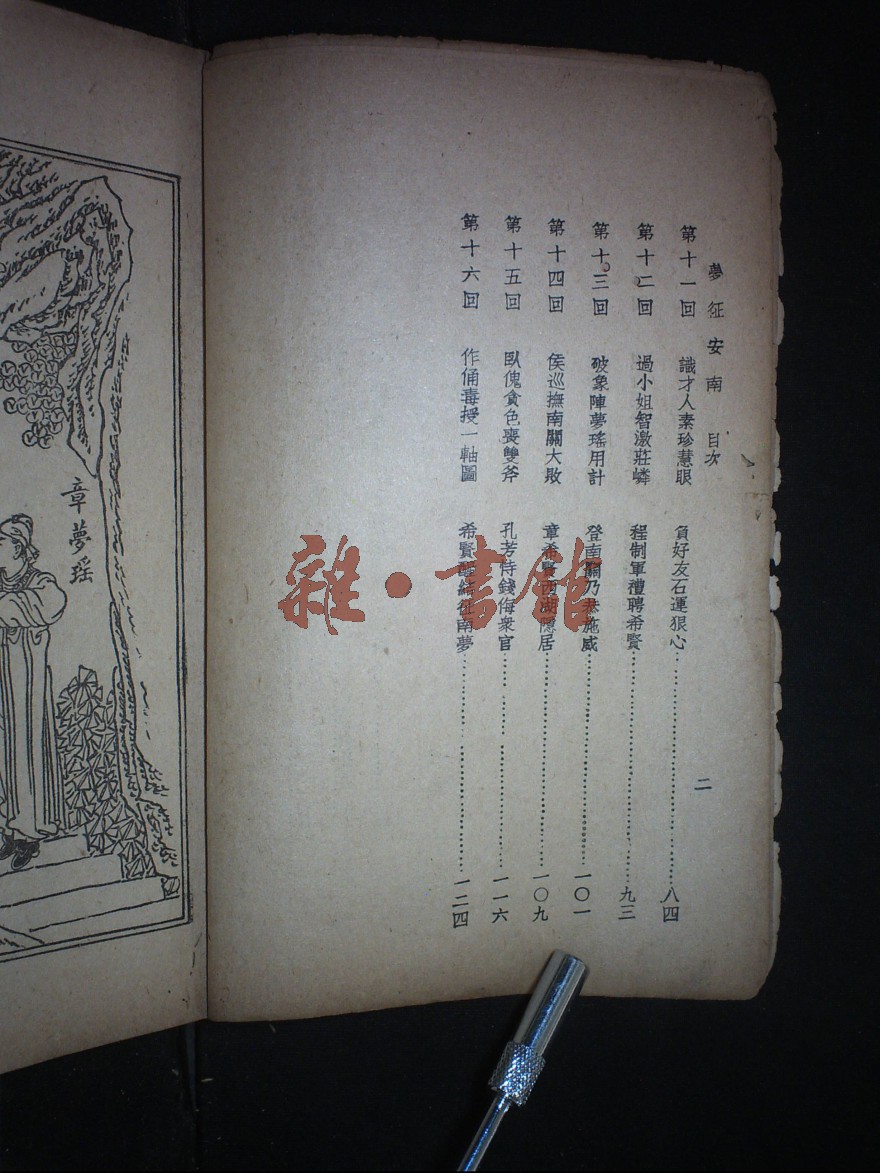 夢征安南 目次 二
第十一回 識才人素珍慧眼 負好友石運狠心 八四
第十二回 過小姐智激莊嶙 程制軍禮聘希賢 九三
第十三回 破象陣夢瑤用計 登南關乃恭施威 一〇一
第十四回 侯巡撫南關大敗 章希賢西湖隱居 一〇九
第十五回 臥傀貪色喪雙斧 孔芳恃錢侮衆官 一一六
第十六回 作俑毒授一軸圖 希賢結征南夢 一二四
章夢瑶
雜·書館